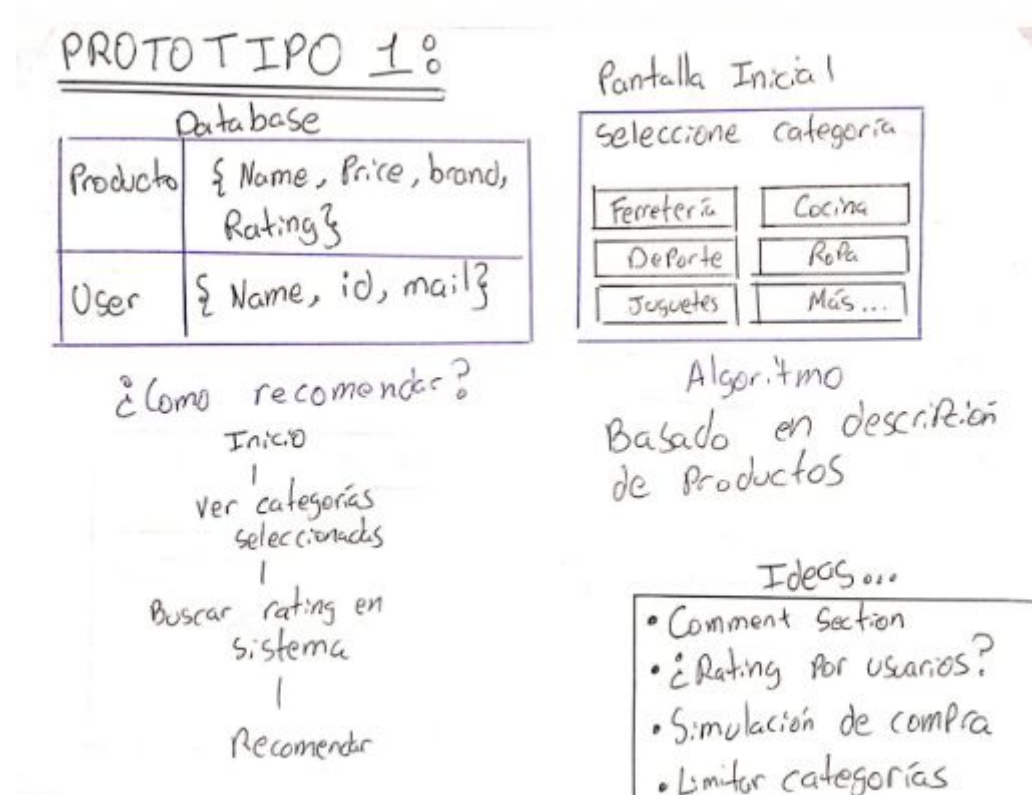 PROTOTIPO 1:
Database
Producto { Name, Price, brand,
Rating}
User { Name, id, mail}
¿Como recomendar?
Inicio
Ver categorías
seleccionadas
Buscar rating en
sistema
Recomendar
Pantalla Inicial
Seleccione categoría
Ferretería Cocina
Deporte Ropa
Juguetes Más...
Algoritmo
Basado en descripción
de Productos
Ideas...
• Comment Section
• ¿Rating Por usuarios?
• Simulación de compra
• Limitar categorías